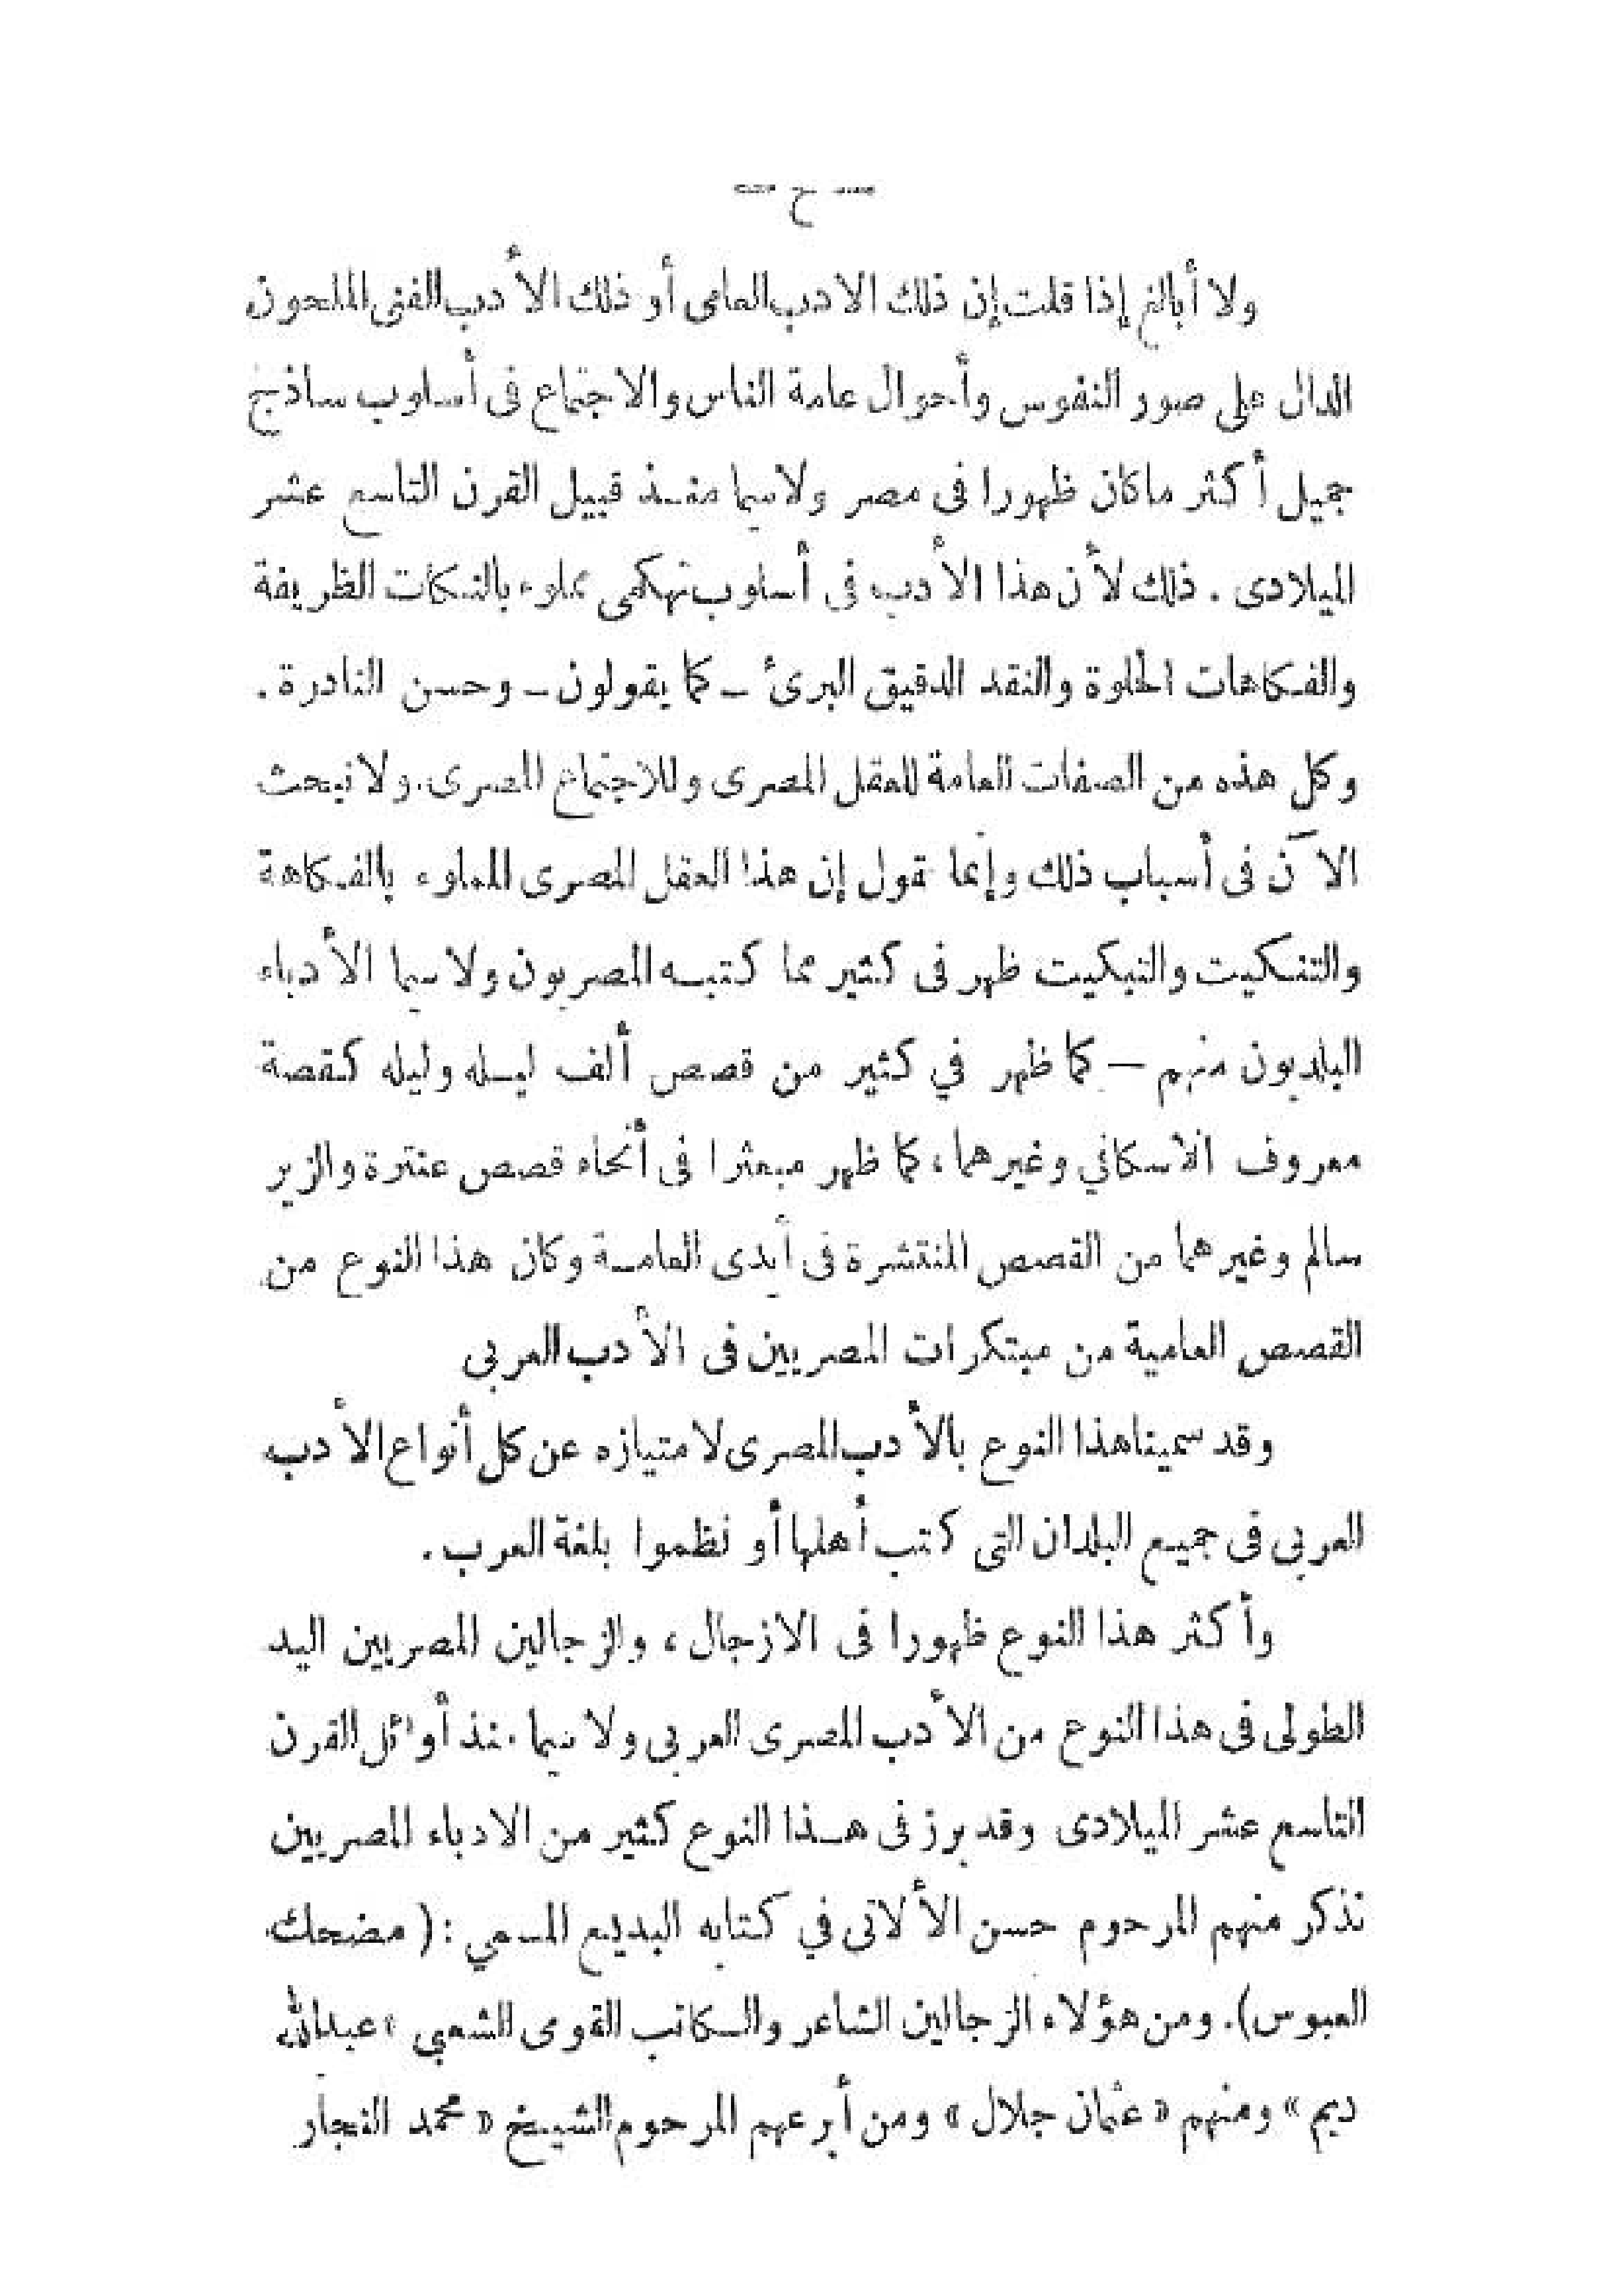 — ح —
ولا أبالغ إذا قلت إن ذلك الادب العامى أو ذلك الأدب الفنى الملحون
الدال على صور النفوس وأحوال عامة الناس والاجتماع فى أسلوب ساذج
جميل أكثر ما كان ظهورا فى مصر ولا سيما منذ قبيل القرن التاسع عشر
الميلادى . ذلك لأن هذا الأدب فى أسلوب تهكمى مملوء بالنكات الظريفة
والفكاهات الحلوة والنقد الدقيق البرئ ــ كما يقولون ــ وحسن النادرة .
وكل هذه من الصفات العامة للعقل المصرى وللاجتماع المصرى. ولا نبحث
الآن فى أسباب ذلك وإنما نقول إن هذا العقل المصرى المملوء بالفكاهة
والتنكيت والتبكيت ظهر فى كثير مما كتبه المصريون ولا سيما الأدباء
البلديون منهم — كما ظهر في كثير من قصص ألف ليله وليله كقصة
معروف الاسكافي وغيرهما ، كما ظهر مبعثرا فى أنحاء قصص عنترة والزير
سالم وغيرهما من القصص المنتشرة فى أيدى العامة وكان هذا النوع من
القصص العامية من مبتكرات المصريين فى الأدب العربى
وقد سمينا هذا النوع بالأدب المصرى لامتيازه عن كل أنواع الأدب
العربى فى جميع البلدان التى كتب أهلها أو نظموا بلغة العرب .
وأكثر هذا النوع ظهورا فى الازجال ، والزجالين المصريين اليد
الطولى فى هذا النوع من الأدب المصرى العربى ولا سيما منذ أوائل القرن
التاسع عشر الميلادى وقد برز فى هذا النوع كثير من الادباء المصريين
نذكر منهم المرحوم حسن الألاتى في كتابه البديع المسمي : ( مضحك
العبوس ). ومن هؤلاء الزجالين الشاعر والكاتب القومى الشعبي « عبدالله
ديم » ومنهم « عثمان جلال » ومن أبرعهم المرحوم الشيخ « محمد النجار